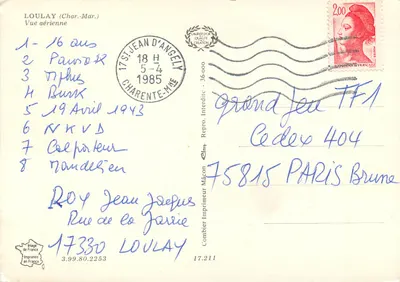 LOULAY (Char.-Mar.)
Vue aérienne
1 - 16 ans
2
3
4 Burk
5 19 Avril 1943
6 NKVD
7 Colporteur
8 Mandelieu
ROY Jean Jacques
Rue de la
17330 LOULAY
3.99.80.2253
17.211
Combier Imprimeur Mâcon
Repro. Interdite - 36.000
17 ST JEAN D'ANGELY
18 H
5-4
1985
CHARENTE-MME
2,00
grand Jeu TF1
Cedex 404
75815 PARIS Brune